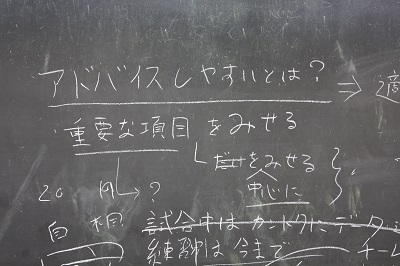 アドバイスしやすいとは? ⇒ 適
・重要な項目をみせる
└だけをみせる
中心に
20 内 → ?
自 相 試合中はカントクにデータ
練習は今まで チーム